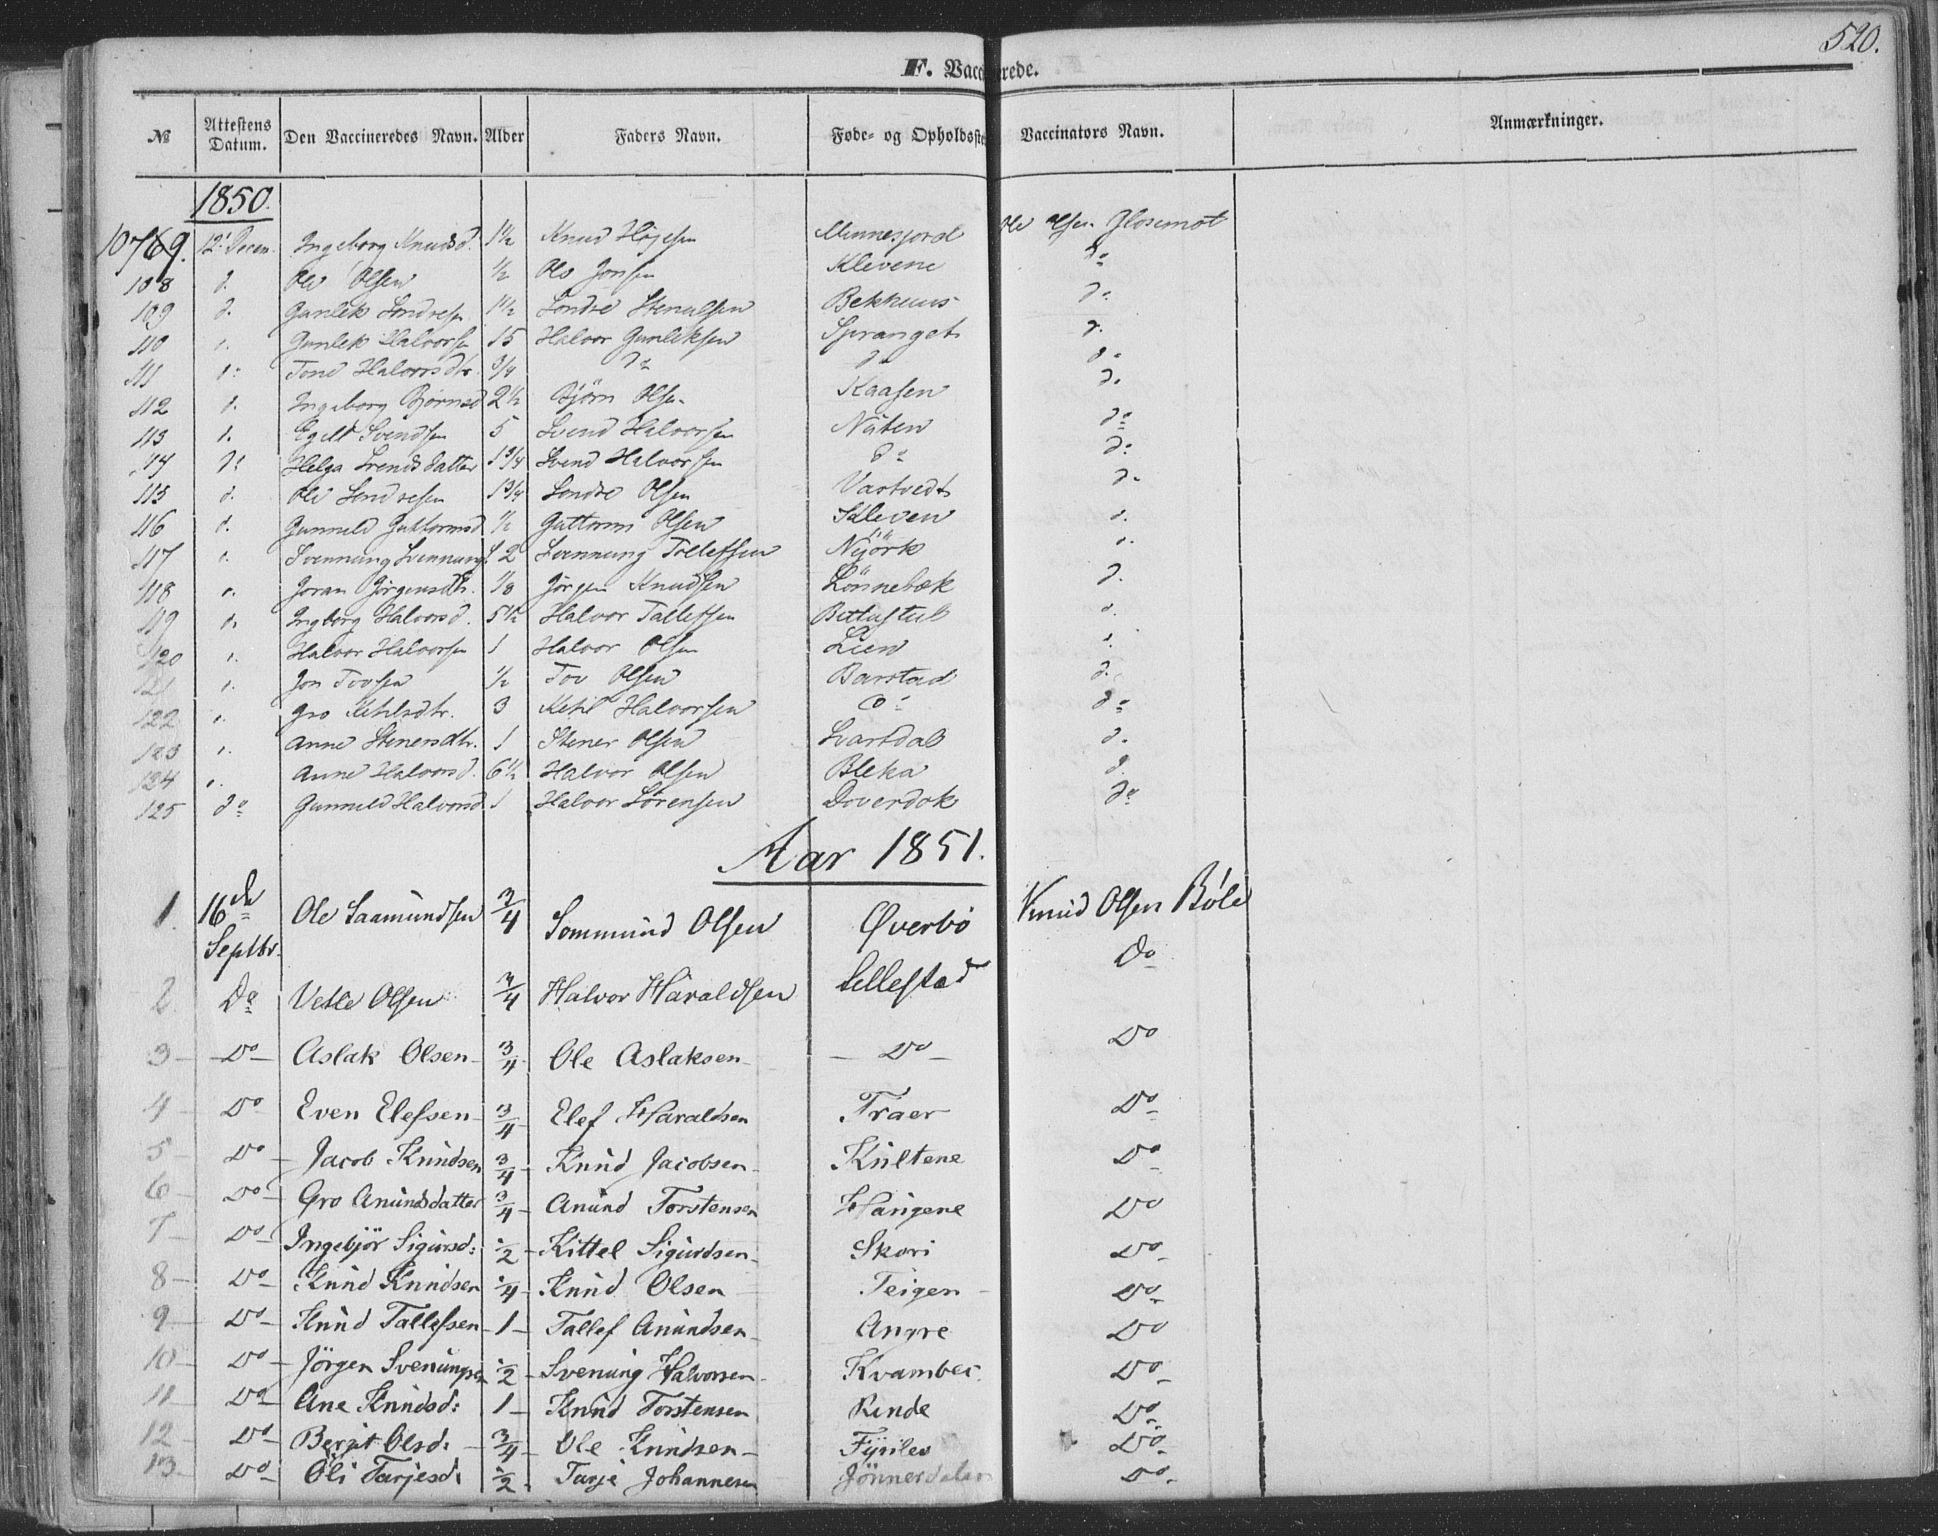 520.
F. Vaccinerede.
№ Attestens Datum. Den Vaccineredes Navn. Alder Faders Navn. Føde- og Opholdsste Vaccinators Navn. Anmærkninger.
1850.
12' Decem. Ingeborg Knudsd. 1½ Knud Højesen Minnesjord Ole Olsen Glosemot
108 d. Ole Olsen ½ Ole Jonsen Klevene do
109 d. Gunlek Sondresen 1½ Sondre Stenulsen Bekhuus do
110 d. Gunlek Halvorsen 15 Halvor Gunleksen Spranget d.
111 d: Tone Halvorsdtr. 3/4 do do do
112 d. Ingeborg Bjørnsd 2½ Bjørn Olsen Kaasen d.
113 d. Egelt Svendsen 5 Svend Halvorsen Nuten do
114 d: Helga Svendsdatter 1 3/4 Svend Halvorsen do do
115 d. Ole Sondresen 1 3/4 Sondre Olsen Vastvedt d.
116 d. Gunneld Guttormsd ½ Guttorm Olsen Skleven d.
117 d. Svennung Svennungs. 2 Svennung Tollefsen Nyörk d.
118 d. Joran Jørgensdtr. 1/8 Jørgen Knudsen Lönnebæk d.
119 d. Ingborg Halvorsd. 5½ Halvor Tallefsen Bitlustul d.
120 d. Halvor Halvorsen 1 Halvor Olsen Lien d.
121 d. Jon Tovsen ½ Tov Olsen Barstad d.
122 d. Gro Ketilsdtr. 3 Ketil Halvorsen do do
123 d. Anne Stenersdtr. 1 Stener Olsen Svartdal d.
124 d. Anne Halvorsd. 6½ Halvor Olsen Bleka d.
125 do Gunneld Halvorsd. 1 Halvor Sörensen Doverdok do
Aar 1851.
1. 16de Septbr. Ole Saamundsen 3/4 Sommund Olsen Øverbö Knud Olsen Böle
2. Do Vetle Olsen 3/4 Halvor Haraldsen Sellestad Do
3 – Do – Aslak Olsen – 3/4 Ole Aslaksen – – Do – Do
4 – Do Even Elefsen – 3/4 Elef Haraldsen Traer Do
5 – Do – Jacob Knudsen 3/4 – Knud Jacobsen – Kultene Do
6 – Do – Gro Anundsdatter 3/4 – Anund Torstensen Haugene Do
7 – Do – Ingebjör Sigursd: ½ – Kittel Sigurdsen – Skori Do –
8 – Do – Knud Knudsen ¼ – Knud Olsen – Teigen – Do –
9 – Do – Knud Tallefsen – 1 – Tallef Anundsen – Angre Do
10 – Do – Jörgen Svenungsen ½ – Svenung Halvorsen – Kvambec Do –
11 – Do – Ane Knudsd: 1 – Knud Torstensen Rinde Do –
12 – Do – Bergit Olsd: – 3/4 – Ole Knudsen – Fyrileo Do –
13 – Do Öli Tarjesd: ½ – Tarje Johannesen Jönnerdalen Do –